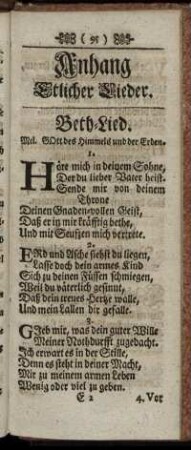 ( 95 )
Anhang
Etlicher Lieder.
Beth-Lied.
Mel. GOtt des Himmels und der Erden.
1.
Höre mich in deinem Sohne,
Der du lieber Vater heist.
Sende mir von deinem
Throne
Deinen Gnaden-vollen Geist,
Daß er in mir kräfftig bethe,
Und mit Seuftzen mich vertrete.
2.
ERd und Asche siehst du liegen,
Lasse doch dein armes Kind
Sich zu deinen Füssen schmiegen,
Weil du väterlich gesinnt,
Daß dein treues Hertze walle,
Und mein Lallen dir gefalle.
3.
GJeb mir, was dein guter Wille
Meiner Nothdurfft zugedacht.
Ich erwart es in der Stille,
Denn es steht in deiner Macht,
Mir zu meinem armen Leben
Wenig oder viel zu geben.
E 2
4. Vor